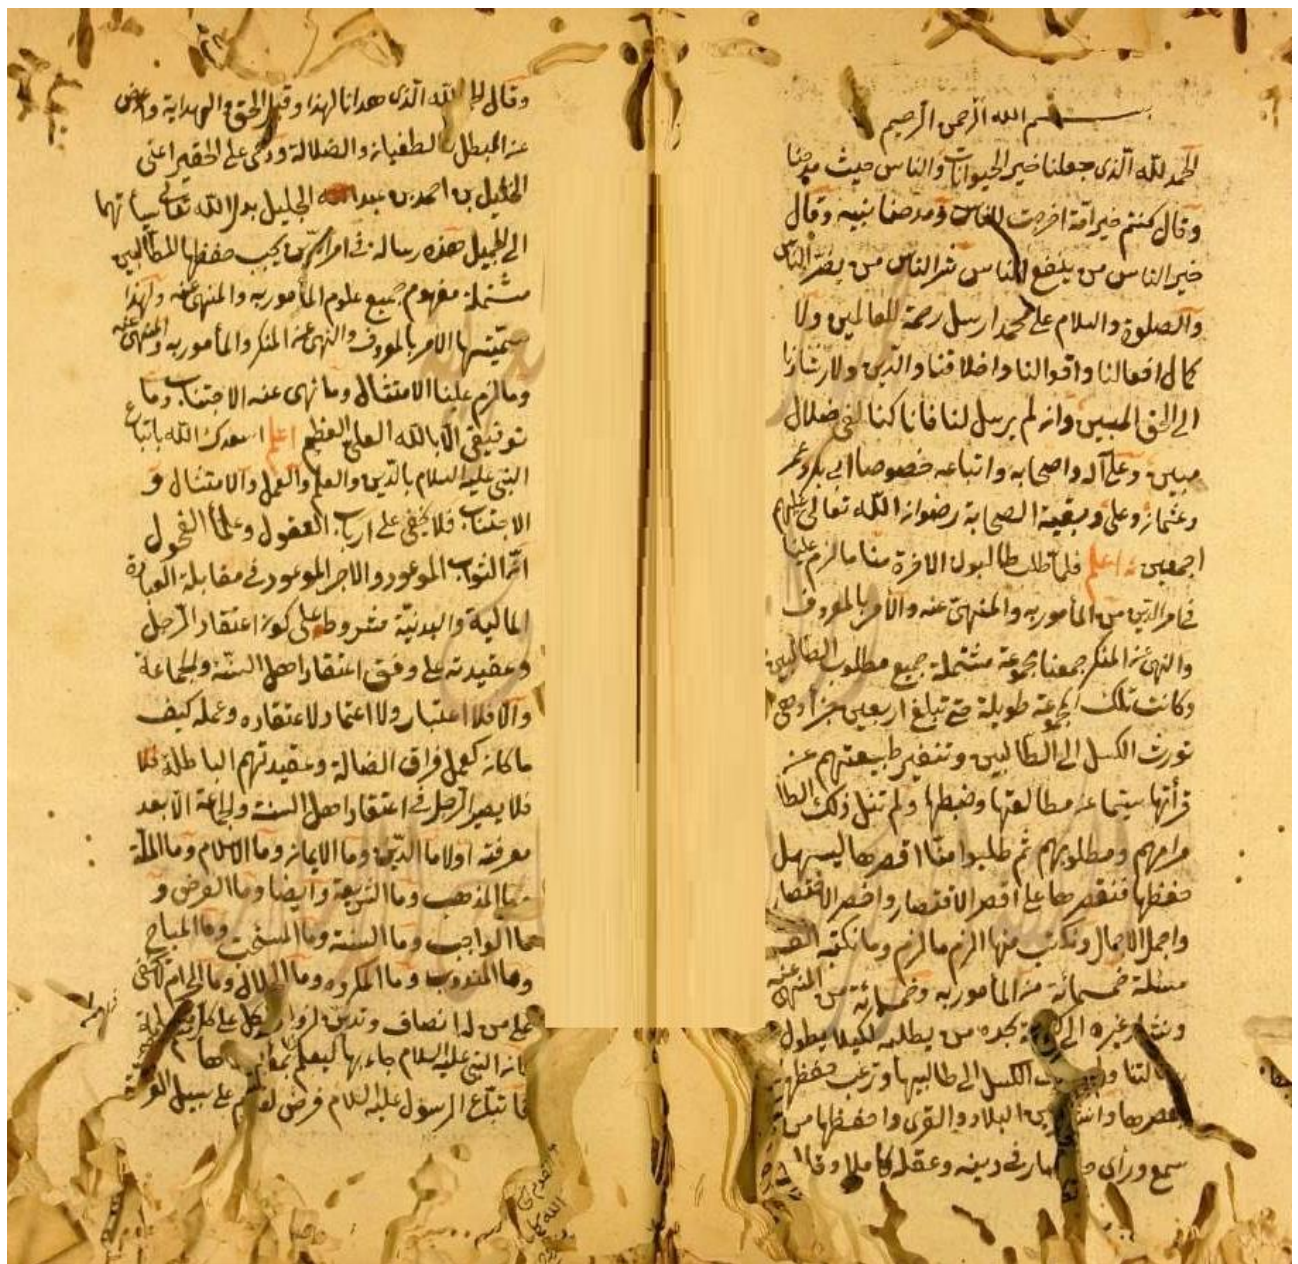 بسم الله الرحمن الرحيم
الحمد لله الذى جعلنا خير الحيوانات والناس حيث مدحنا
وقال كنتم خير امة اخرجت للناس ومدحنا بنبيه وقال
خير الناس من ينفع الناس شر الناس من يضر الناس
والصلوة والسلام على محمد ارسل رحمة للعالمين ولا
كمال افعالنا واقوالنا واخلاقنا والدين ولارشادنا
الى الحق المبين وان لم يرسل لنا فأنا كنا لفى ضلال
مبين وعلى آله واصحابه واتباعه خصوصا ابى بكر وعمر
وعثمان وعلى وبقية الصحابة رضوان الله تعالى عليهم
اجمعين ثم اعلم فلما طلب طالبون الآخرة منا ما لزم علينا
فى امر الدين من المأمور به والمنهى عنه والأمر بالمعروف
والنهى عن المنكر جمعنا مجموعة مشتملة جميع مطلوب الطالبين
وكانت تلك المجموعة طويلة حتى تبلغ اربعين جزأ وهى
تورث الكسل الى الطالبين وتنفير طبيعتهم عن
قرأتها سيما عن مطالعتها وضبطها ولم تنل ذلك الطا
مرامهم ومطلوبهم ثم طلبوا منا اقصرها ليسهل
حفظها فنقصرها على اقصر الاقتصار واخصر الاختصار
واجمل الاجمال ونكتب منها الزم ما لزم وما نكتبه الف
مسئلة خمسمائة من المأمور به وخمسمائة من المنهى عنه
ونشار غيره الى يجده من يطلبه لكيلا يطول
الكسل الى طالبيها وترغب حفظها
البلاد والقرى واحفظها من
سمع ورأى فى دينه وعقله كاملا وقال
وقال الحمد لله الذى هدانا لهذا وقبل الحق والهداية واعرض
عن المبطل والطغيان والضلالة ودعى على الحقير اعنى
الخليل بن احمد بن عبد الله الجليل بدل الله تعالى سيأتهما
الى الجميل هذه رسالة فى امر الدين يجب حفظها للطالبين
مشتملة مفهوم جميع علوم المأمور به والمنهى عنه ولهذا
سميتها الامر بالمعروف والنهى عن المنكر والمأمور به والمنهى عنه
وما لزم علينا الامتثال وما نهى عنه الاجتناب وما
توفيقى الا بالله العلى العظيم اعلم اسعدك الله باتباع
النبى عليه السلام بالدين والعلم والعمل والامتثال و
الاجتناب فلا يخفى على ارباب العقول وعلمأ الفحول
انما الثواب الموعود والاجر الموعود فى مقابلة العبادة
المالية والبدنية مشروط على كون اعتقاد الرجل
وعقيدته على وفق اعتقاد اهل السنة والجماعة
والا فلا اعتبار ولا اعتماد لاعتقاده وعمله كيف
ما كان كعمل فراق الضالة وعقيدتهم الباطلة فلا
فلا يصير الرجل فى اعتقاد اهل السنة والجماعة الا بعد
معرفته اولا ما الدين وما الايمان وما الاسلام وما الملة
وما المذهب وما الشريعة وايضا وما الفرض و
ما الواجب وما السنة وما المستحب وما المباح
وما المندوب وما المكروه وما الحلال وما الحرام لا يخفى
على من له انصاف وتدين
كان النبى عليه السلام جاء بها ليعلم
فاتباع الرسول عليه السلام فرض على سبيل